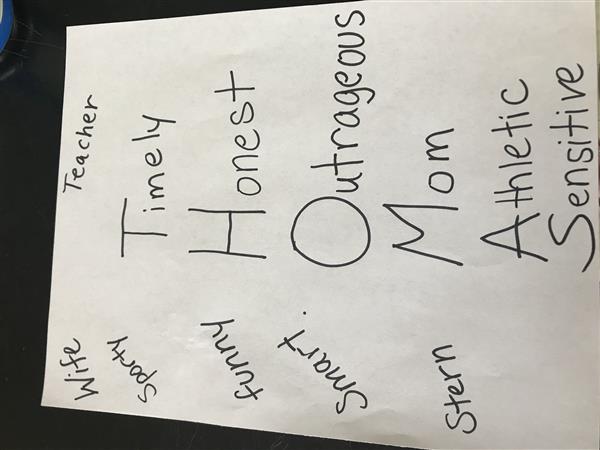 Wife Teacher
Sporty Timely
funny Honest
Smart. Outrageous
Stern Mom
Athletic
Sensitive